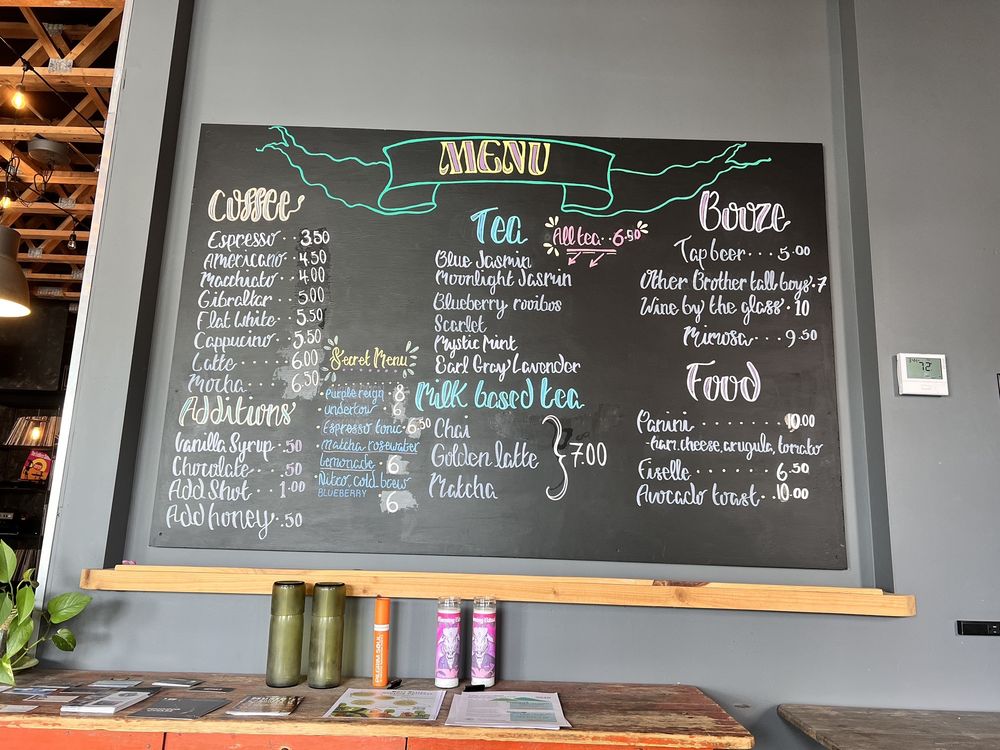 MENU
Coffee
Espresso . . 3.50
Americano . . 4.50
Macchiato . . 4.00
Gibraltar . . 5.00
Flat White . . 5.50
Cappucino . . 5.50
Latte . . . 6.00
Mocha . . . 6.50
Additions
Vanilla Syrup . .50
Chocolate . . . .50
Add Shot . . . 1.00
Add honey . . .50
Secret Menu
Purple reign . 8
undertow . . 6
Espresso tonic . 6.50
Matcha rosewater
lemonade . 6
Nitro, cold brew
BLUEBERRY
6
Tea
All tea . . 6.50
Blue Jasmin
Moonlight Jasmin
Blueberry rooibos
Scarlet
Mystic Mint
Earl Gray Lavender
Milk based tea
Chai
Golden latte
Matcha
7.00
Booze
Tap beer . . . 5.00
Other Brother tall boys . 7
Wine by the glass . 10
Mimosa . . . 9.50
Food
Panini . . . . . . 10.00
-ham, cheese, arugula, tomato
Ficelle . . . . . . . 6.50
Avocado toast . . 10.00
72